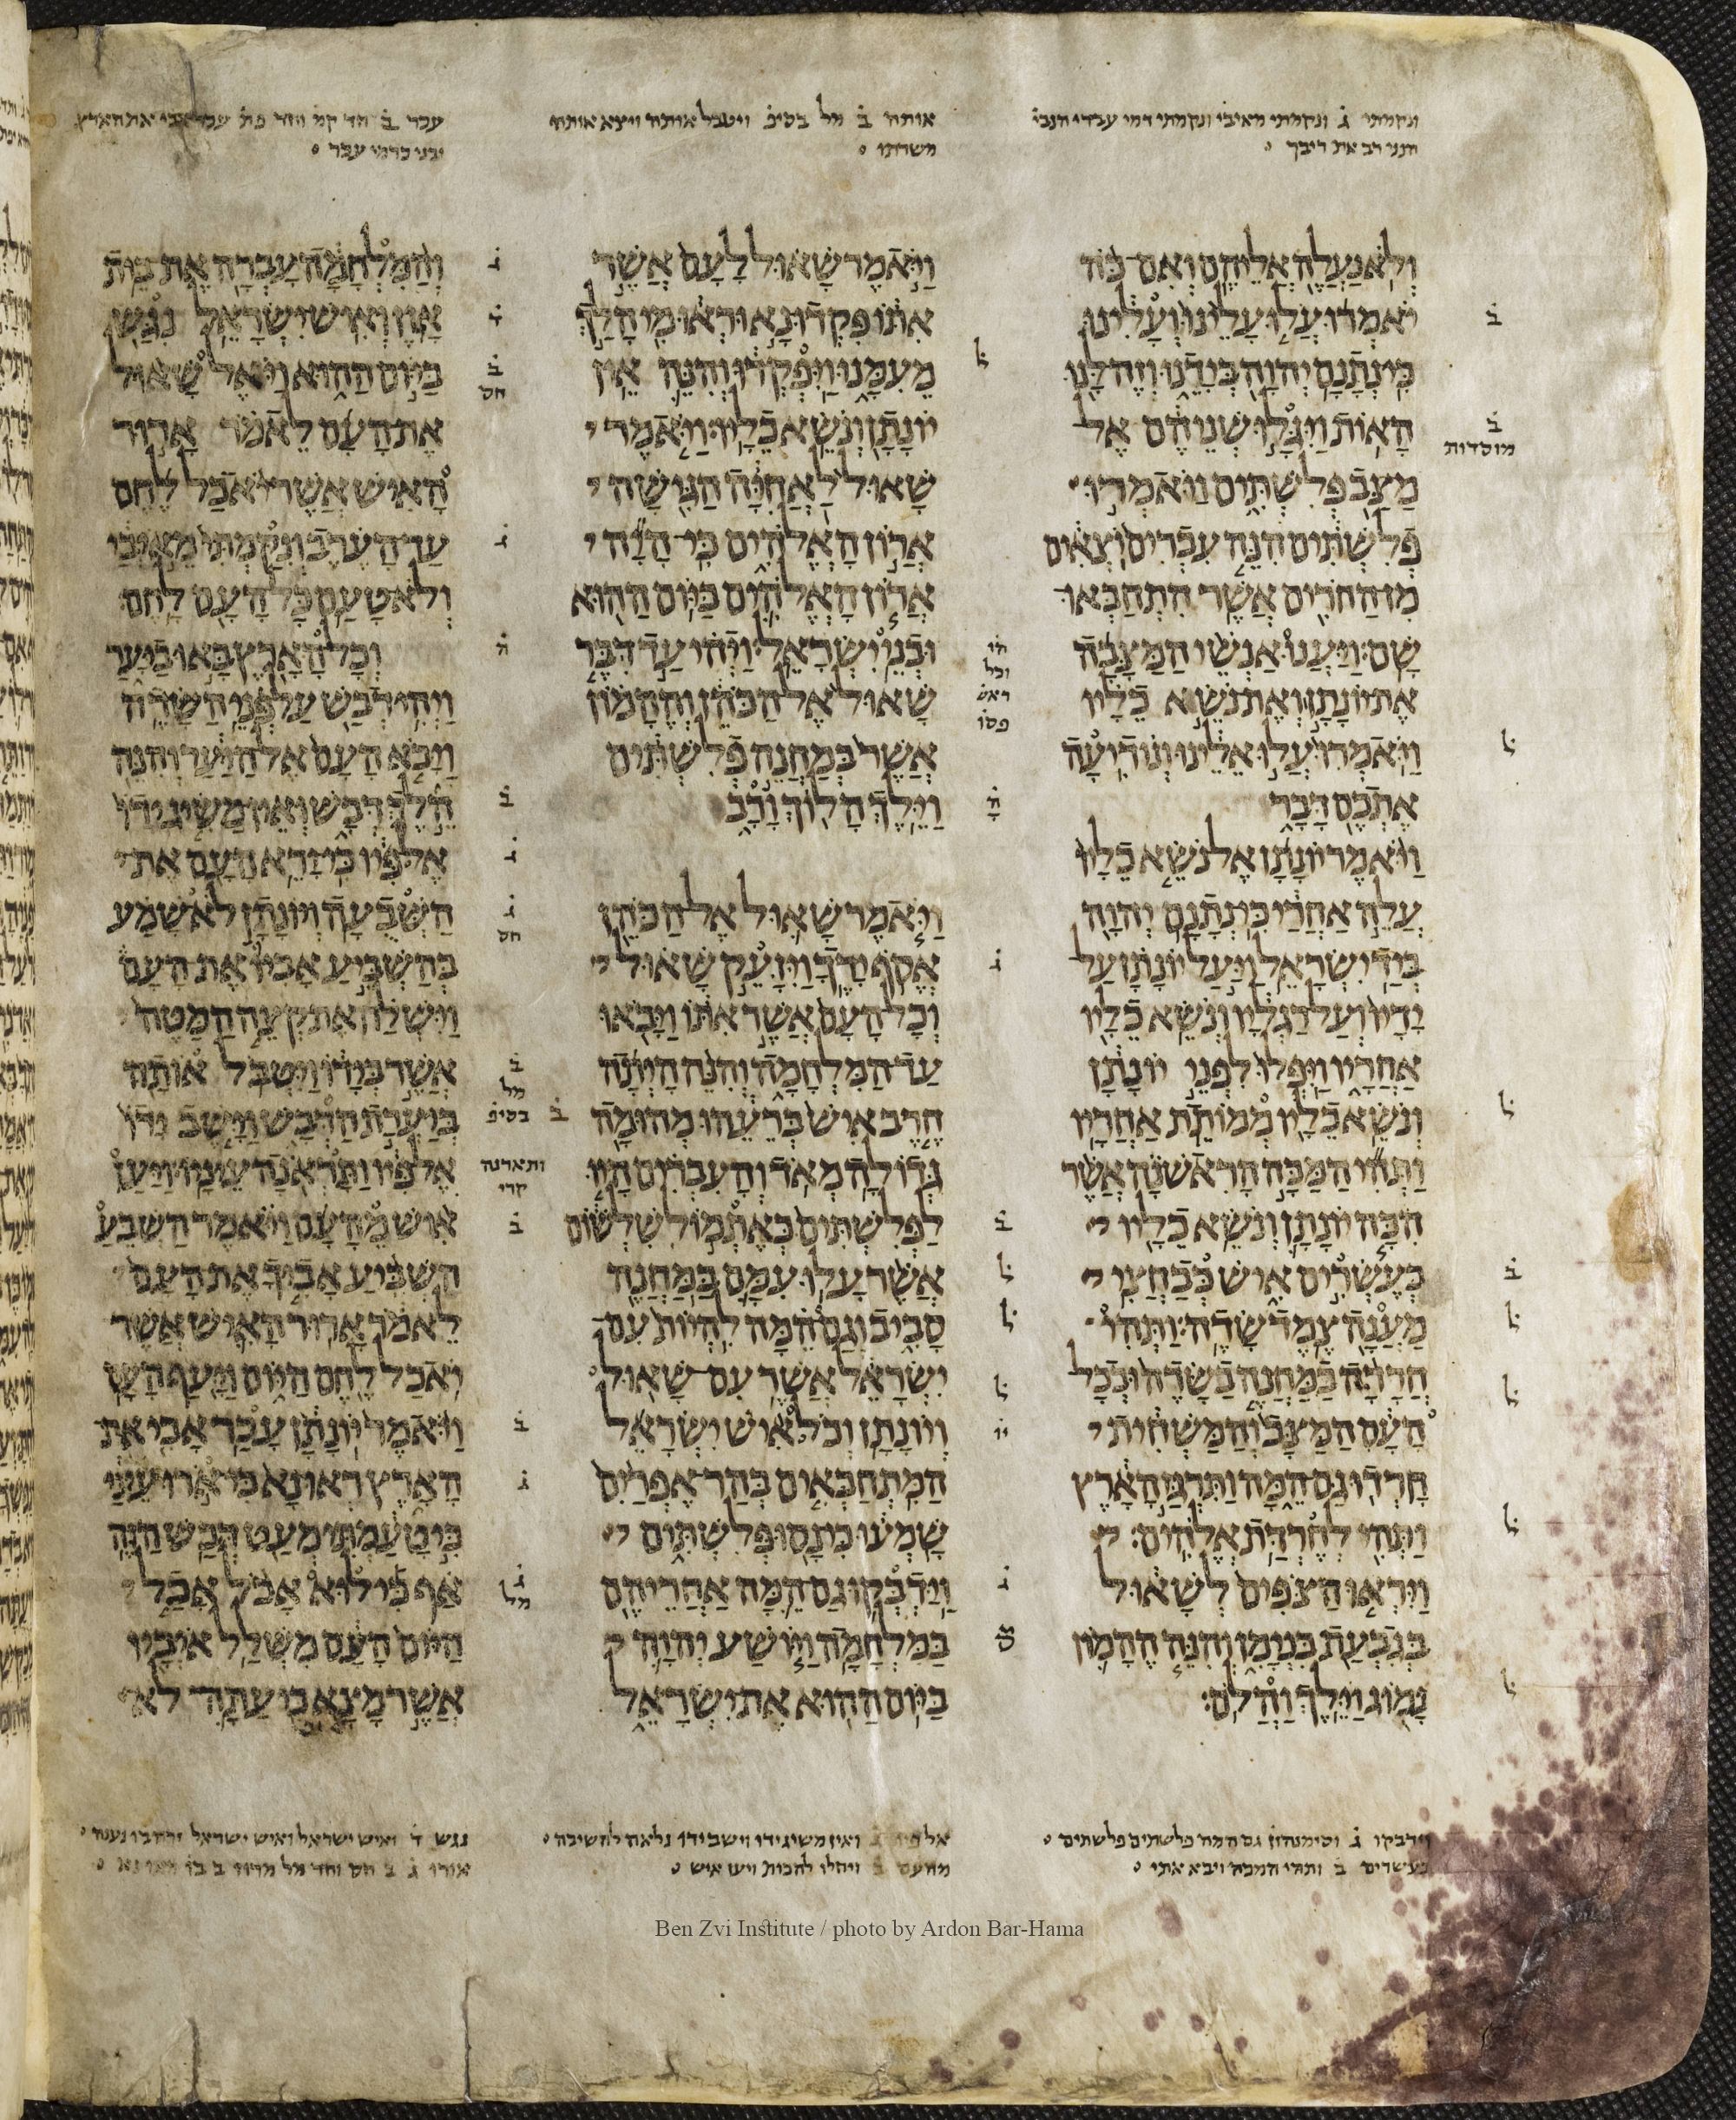 ונקמתי ג֗ ונקמתי מאיבי ונקמתי דמי עבדי הנבי
הנני רב את ריבך
אותה ב֗ מל בסיפ֗ ויטבל אותה ויוצא אותה
משרתו
עכר ב֗ חד קמ֗ וחד פת֗ עכר אבי את הארץ
יבני כרמי עכר
וְלֹא נַעֲלֶה אֲלֵיהֶם וְאִם־כֹּה
יֹאמְרוּ עֲלוּ עָלֵינוּ וְעָלִינוּ
כִּי־נְתָנָם יְהוָה בְּיָדֵנוּ וְזֶה־לָּנוּ
הָאוֹת וַיִּגָּלוּ שְׁנֵיהֶם אֶל
מַצַּב פְּלִשְׁתִּים וַיֹּאמְרוּ
פְלִשְׁתִּים הִנֵּה עִבְרִים יֹצְאִים
מִן־הַחֹרִים אֲשֶׁר הִתְחַבְּאוּ־
שָׁם׃ וַיַּעֲנוּ אַנְשֵׁי הַמַּצָּבָה
אֶת־יוֹנָתָן וְאֶת־נֹשֵׂא כֵלָיו
וַיֹּאמְרוּ עֲלוּ אֵלֵינוּ וְנוֹדִיעָה
אֶתְכֶם דָּבָר
וַיֹּאמֶר יוֹנָתָן אֶל־נֹשֵׂא כֵלָיו
עֲלֵה אַחֲרַי כִּי־נְתָנָם יְהוָה
בְּיַד יִשְׂרָאֵל׃ וַיַּעַל יוֹנָתָן עַל־
יָדָיו וְעַל־רַגְלָיו וְנֹשֵׂא כֵלָיו
אַחֲרָיו וַיִּפְּלוּ לִפְנֵי יוֹנָתָן
וְנֹשֵׂא כֵלָיו מְמוֹתֵת אַחֲרָיו
וַתְּהִי הַמַּכָּה הָרִאשֹׁנָה אֲשֶׁר
הִכָּה יוֹנָתָן וְנֹשֵׂא כֵלָיו
כְּעֶשְׂרִים אִישׁ כְּבַחֲצִי
מַעֲנָה צֶמֶד שָׂדֶה׃ וַתְּהִי
חֲרָדָה בַמַּחֲנֶה בַשָּׂדֶה וּבְכָל־
הָעָם הַמַּצָּב וְהַמַּשְׁחִית
חָרְדוּ גַּם־הֵמָּה וַתִּרְגַּז הָאָרֶץ
וַתְּהִי לְחֶרְדַּת אֱלֹהִים׃
וַיִּרְאוּ הַצֹּפִים לְשָׁאוּל
בְּגִבְעַת בִּנְיָמִן וְהִנֵּה הֶהָמוֹן
נָמוֹג וַיֵּלֶךְ וַהֲלֹם׃
וַיֹּאמֶר שָׁאוּל לָעָם אֲשֶׁר
אִתּוֹ פִּקְדוּ־נָא וּרְאוּ מִי הָלַךְ
מֵעִמָּנוּ וַיִּפְקְדוּ וְהִנֵּה אֵין
יוֹנָתָן וְנֹשֵׂא כֵלָיו׃ וַיֹּאמֶר
שָׁאוּל לַאֲחִיָּה הַגִּישָׁה
אֲרוֹן הָאֱלֹהִים כִּי־הָיָה
אֲרוֹן הָאֱלֹהִים בַּיּוֹם הַהוּא
וּבְנֵי יִשְׂרָאֵל׃ וַיְהִי עַד דִּבֶּר
שָׁאוּל אֶל־הַכֹּהֵן וְהֶהָמוֹן
אֲשֶׁר בְּמַחֲנֵה פְלִשְׁתִּים
וַיֵּלֶךְ הָלוֹךְ וָרָב
וַיֹּאמֶר שָׁאוּל אֶל־הַכֹּהֵן
אֱסֹף יָדֶךָ׃ וַיִּזָּעֵק שָׁאוּל
וְכָל־הָעָם אֲשֶׁר אִתּוֹ וַיָּבֹאוּ
עַד־הַמִּלְחָמָה וְהִנֵּה הָיְתָה
חֶרֶב אִישׁ בְּרֵעֵהוּ מְהוּמָה
גְּדוֹלָה מְאֹד׃ וְהָעִבְרִים הָיוּ
לַפְּלִשְׁתִּים כְּאֶתְמוֹל שִׁלְשׁוֹם
אֲשֶׁר עָלוּ עִמָּם בַּמַּחֲנֶה
סָבִיב וְגַם־הֵמָּה לִהְיוֹת עִם־
יִשְׂרָאֵל אֲשֶׁר עִם־שָׁאוּל
וְיוֹנָתָן׃ וְכֹל אִישׁ יִשְׂרָאֵל
הַמִּתְחַבְּאִים בְּהַר־אֶפְרַיִם
שָׁמְעוּ כִּי־נָסוּ פְּלִשְׁתִּים
וַיַּדְבְּקוּ גַם־הֵמָּה אַחֲרֵיהֶם
בַּמִּלְחָמָה׃ וַיּוֹשַׁע יְהוָה
בַּיּוֹם הַהוּא אֶת־יִשְׂרָאֵל
וְהַמִּלְחָמָה עָבְרָה אֶת־בֵּית
אָוֶן׃ וְאִישׁ־יִשְׂרָאֵל נִגַּשׂ
בַּיּוֹם הַהוּא וַיֹּאֶל שָׁאוּל
אֶת־הָעָם לֵאמֹר אָרוּר
הָאִישׁ אֲשֶׁר־יֹאכַל לֶחֶם
עַד־הָעֶרֶב וְנִקַּמְתִּי מֵאֹיְבַי
וְלֹא־טָעַם כָּל־הָעָם לָחֶם׃
וְכָל־הָאָרֶץ בָּאוּ בַיָּעַר
וַיְהִי דְבַשׁ עַל־פְּנֵי הַשָּׂדֶה׃
וַיָּבֹא הָעָם אֶל־הַיַּעַר וְהִנֵּה
הֵלֶךְ דְּבָשׁ וְאֵין־מַשִּׂיג יָדוֹ
אֶל־פִּיו כִּי־יָרֵא הָעָם אֶת־
הַשְּׁבֻעָה׃ וְיוֹנָתָן לֹא־שָׁמַע
בְּהַשְׁבִּיעַ אָבִיו אֶת־הָעָם
וַיִּשְׁלַח אֶת־קְצֵה הַמַּטֶּה
אֲשֶׁר בְּיָדוֹ וַיִּטְבֹּל אוֹתָהּ
בְּיַעְרַת הַדְּבָשׁ וַיָּשֶׁב יָדוֹ
אֶל־פִּיו וַתָּרֹאנָה עֵינָיו׃ וַיַּעַן
אִישׁ מֵהָעָם וַיֹּאמֶר הַשְׁבֵּעַ
הִשְׁבִּיעַ אָבִיךָ אֶת־הָעָם
לֵאמֹר אָרוּר הָאִישׁ אֲשֶׁר־
יֹאכַל לֶחֶם הַיּוֹם וַיָּעַף הָעָם׃
וַיֹּאמֶר יוֹנָתָן עָכַר אָבִי אֶת־
הָאָרֶץ רְאוּ־נָא כִּי־אֹרוּ עֵינַי
כִּי טָעַמְתִּי מְעַט דְּבַשׁ הַזֶּה׃
אַף כִּי לוּא אָכֹל אָכַל
הַיּוֹם הָעָם מִשְּׁלַל אֹיְבָיו
אֲשֶׁר מָצָא כִּי עַתָּה לֹא־
וידבקו ג֗ וסימנהון גם המה פלשתים פלשתים
כעשרים ב֗ ותהי המכה ויבא אתי
אל פיו ג֗ ואין משיג ידו וישב ידו נלאה להשיבה
מהעם ב֗ ויחלו להכות ויען איש
נגש ד֗ ואיש ישראל ואיש ישראל
אורו ג֗ ב חס וחד מל
Ben Zvi Institute / photo by Ardon Bar-Hama